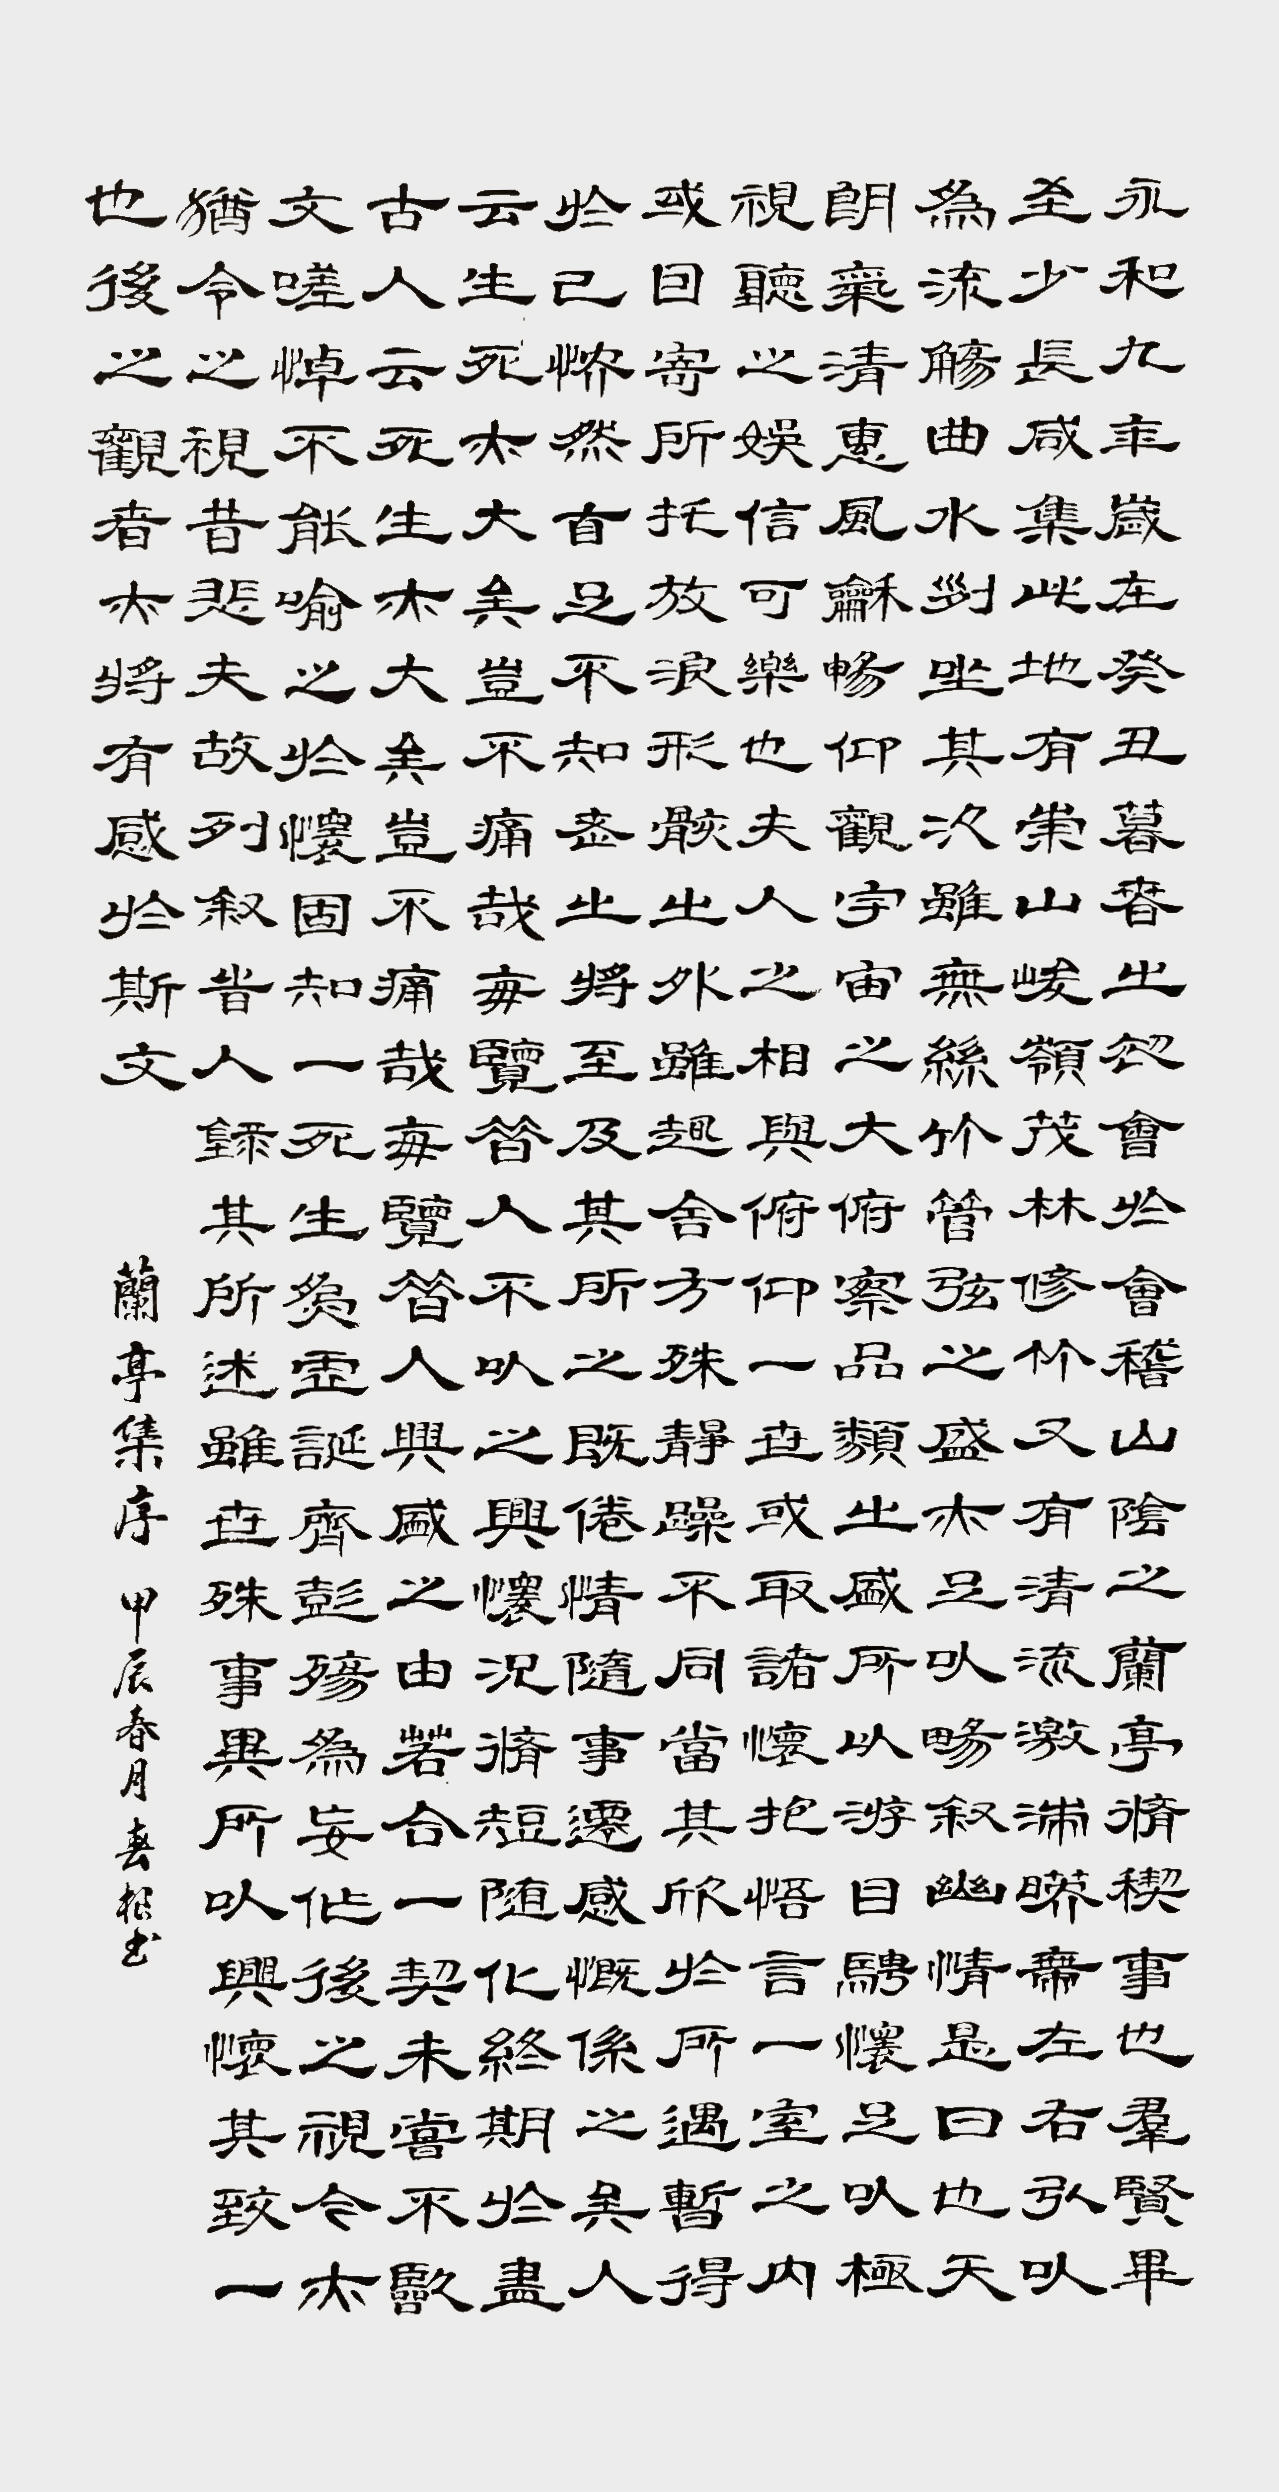 永和九年歲在癸丑暮春之初會於會稽山陰之蘭亭脩禊事也羣賢畢
至少長咸集此地有崇山峻嶺茂林修竹又有清流激湍暎帶左右引以
為流觴曲水列坐其次雖無絲竹管弦之盛亦足以暢叙幽情是日也天
朗氣清惠風龢暢仰觀宇宙之大俯察品類之盛所以游目騁懷足以極
視聽之娛信可樂也夫人之相與俯仰一世或取諸懷抱悟言一室之內
或因寄所托放浪形骸之外雖趣舍万殊靜躁不同當其欣於所遇暫得
於己快然自足不知老之將至及其所之既倦情隨事遷感慨係之矣人
云生死亦大矣豈不痛哉每覽昔人不以之興懷況脩短随化終期於盡
古人云死生亦大矣豈不痛哉每覽昔人興感之由若合一契未嘗不臨
文嗟悼不能喻之於懷固知一死生為虛誕齊彭殤為妄作後之視今亦
猶今之視昔悲夫故列叙時人錄其所述雖世殊事異所以興懷其致一
也後之觀者亦將有感於斯文
蘭亭集序 甲辰春月 书